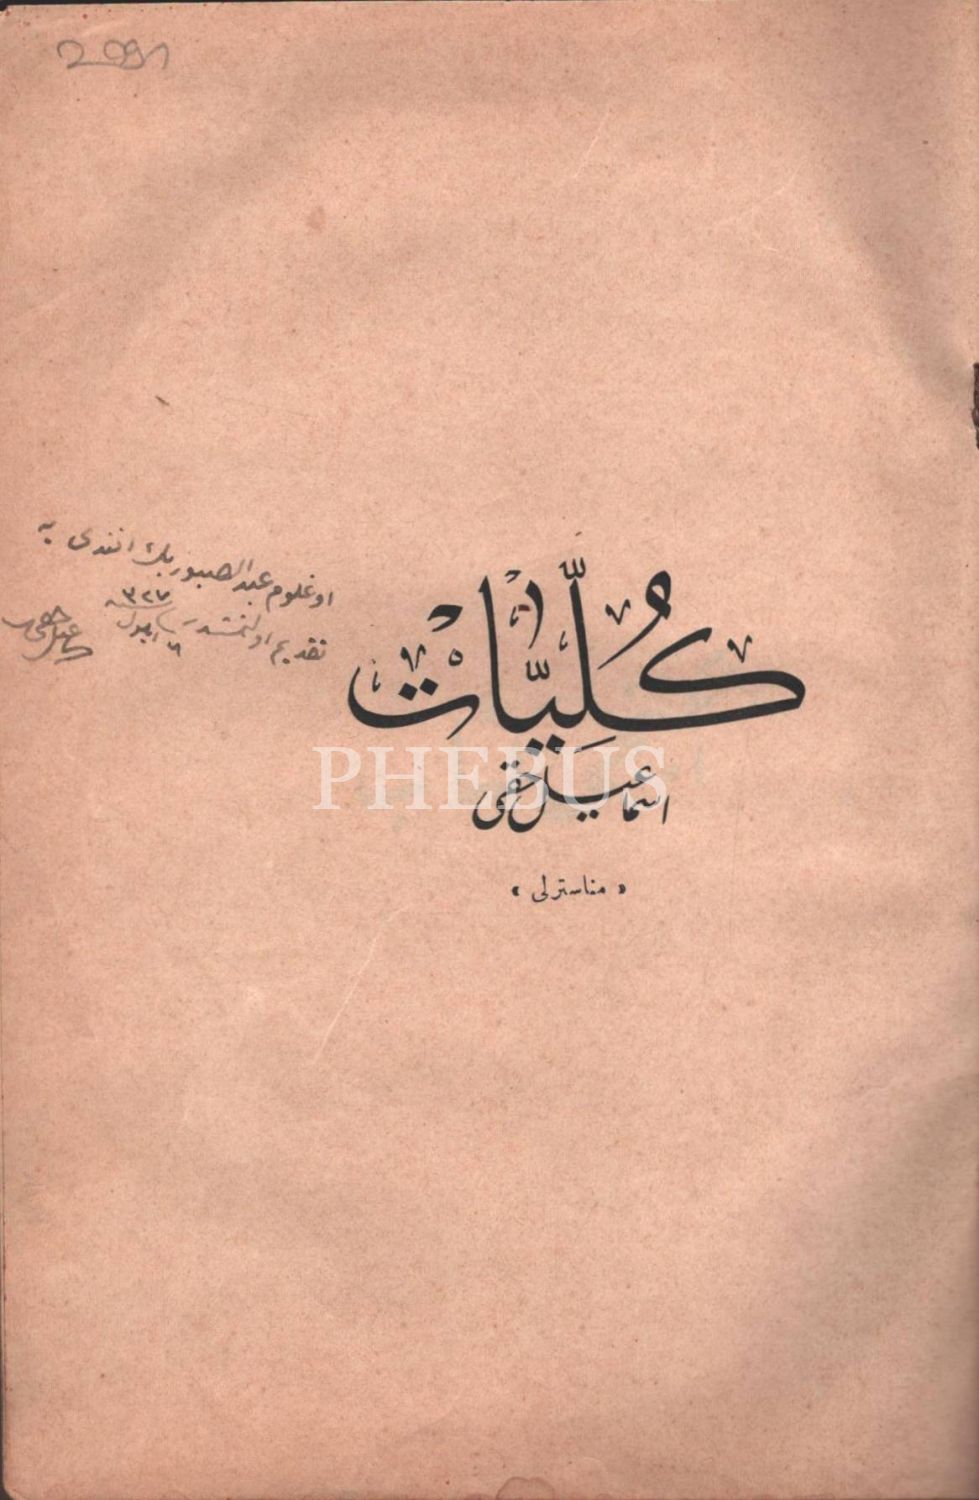 2991
اوغلوم عبدالصبور بك افندى يه
تقديم اولنمشدر
٣٢٧
ايلول
كُلِّيَّات
اسماعيل حقى
« مناسترلى »
PHEBUS